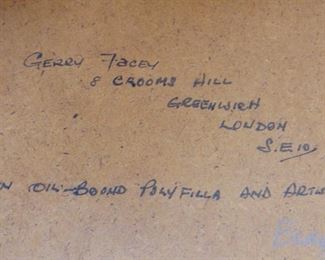 GERRY FACEY
8 CROOMS HILL
GREENWICH
LONDON
S.E.10.
OIL-BOUND POLYFILLA AND